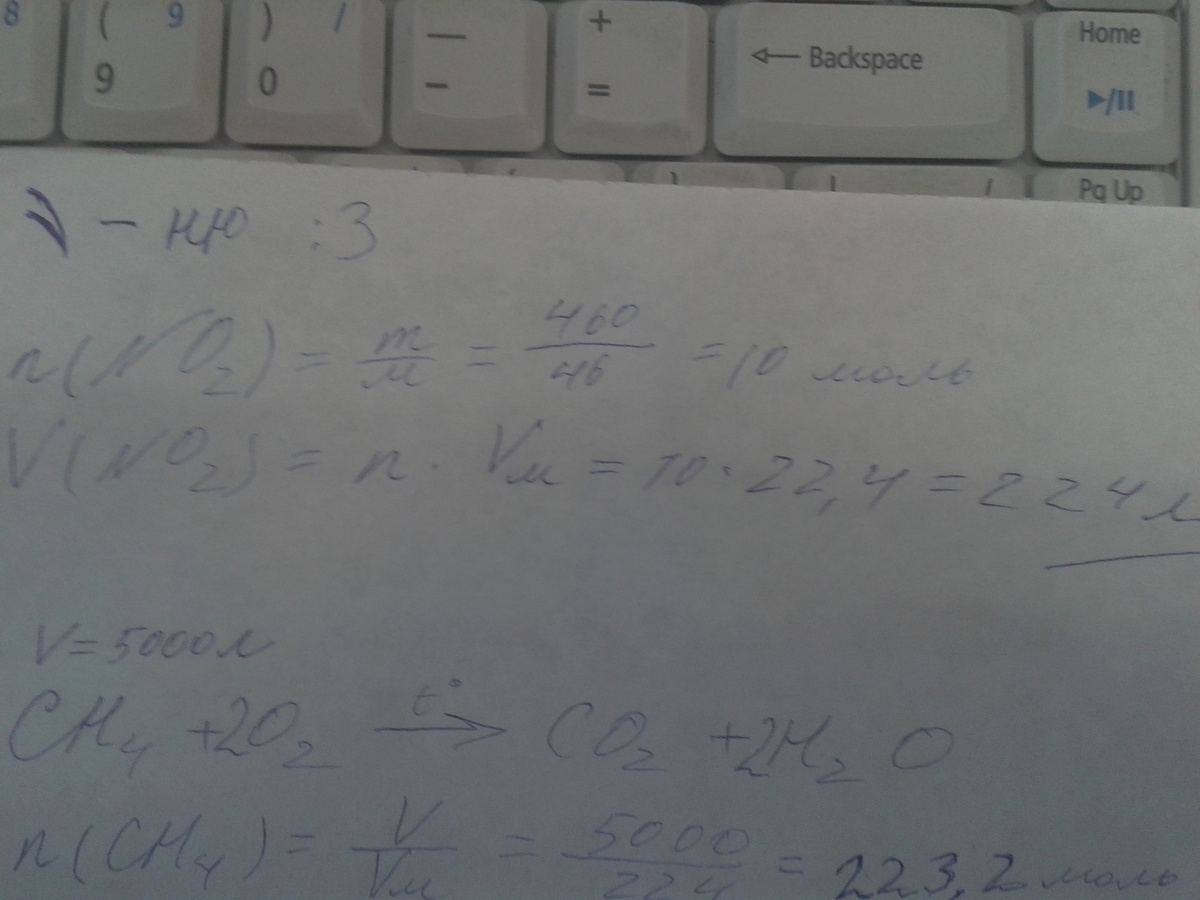 8 ( 9 ) / — + Backspace Home
9 0 - =
Pg Up
ν - ню :3
n(NO₂) = m/м = 460/46 = 10 моль
V(NO₂) = n · Vм = 10 · 22,4 = 224 л
V=5000л
CH₄ +2O₂ —t°→ CO₂ +2H₂O
n(CH₄) = V/Vм = 5000/224 = 223,2 моль